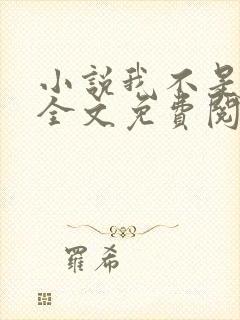 小說我不是
全文免費閱
羅希